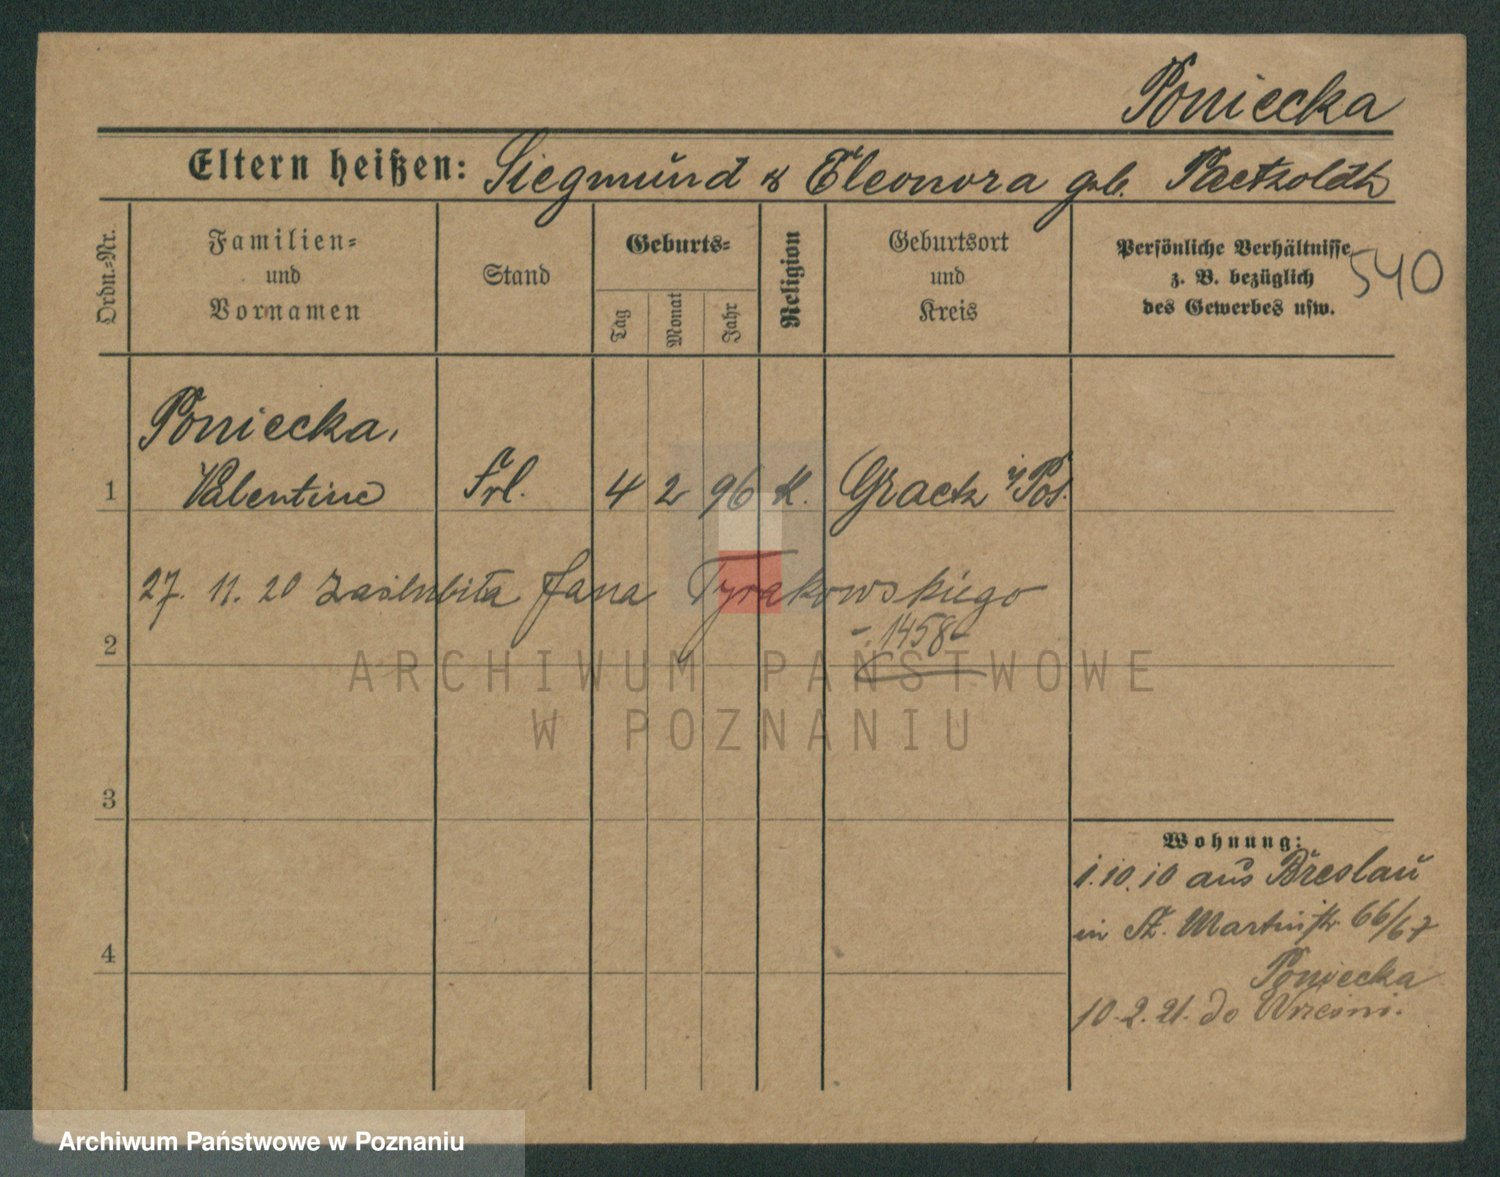 Poniecka
Eltern heißen: Siegmund & Eleonora geb. Paetzoldt
Ordn.=Nr.
Familien=
und
Vornamen
Stand
Geburts=
Tag
Monat
Jahr
Religion
Geburtsort
und
Kreis
Persönliche Verhältnisse
z. B. bezüglich
des Gewerbes usw.
540
Poniecka,
1 Valentine Frl. 4 2 96 K. Graetz i/Pos.
27. 11. 20 zaślubiła Jana Tyrakowskiego
- 1458 -
2
ARCHIWUM PAŃSTWOWE
W POZNANIU
3
Wohnung:
1.10.10 aus Breslau
in St. Martinstr. 66/67
4
Poniecka
10.2.21. do Wrześni.
Archiwum Państwowe w Poznaniu